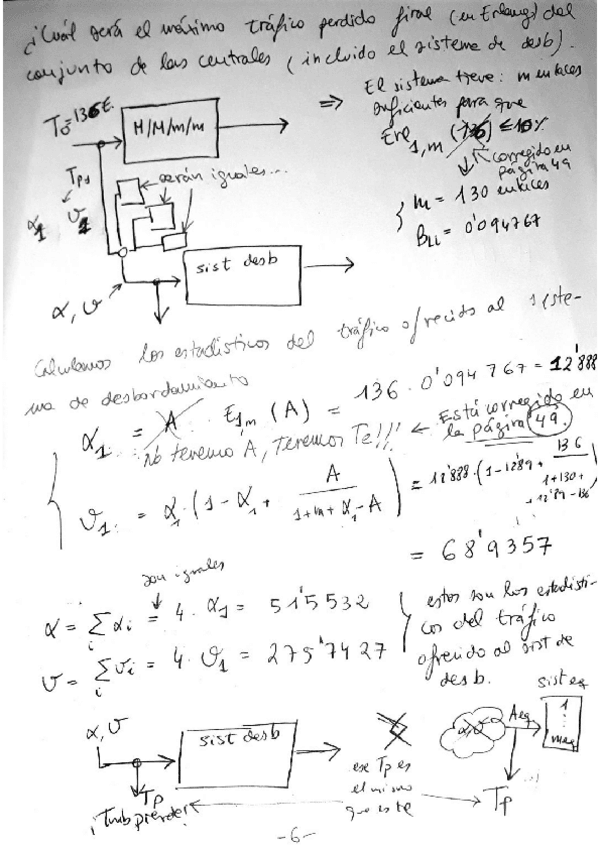 ¿Cuál será el máximo tráfico perdido final (en Erlang) del
conjunto de las centrales (incluido el sistema de desb).
To=136E.
H/M/m/m
⇒ El sistema tiene: m enlaces
suficientes para que
Ere 1,m (136) ≤10%
corregido en
página 49
m = 130 enlaces
B11 = 0'094767
Tp1
α1 v1
serán iguales...
sist desb
α, v
Calculamos los estadísticos del tráfico ofrecido al siste-
ma de desbordamiento
α1 = A · E1,m (A) = 136 · 0'094767 = 12'888
No tenemo A, Tenemos Te!!! ← Está corregido en
la página 49.
v1 = α1 · (1 - α1 + A / (1+m+α1-A)) = 12'888 · (1-12'89 + 136 / (1+130+12'89-136))
= 68'9357
son iguales
α = Σi αi = 4 · α1 = 51'5532
v = Σi vi = 4 · v1 = 275'7427
estos son los estadísti-
cos del tráfico
ofrecido al sist de
desb.
α, v
sist desb
Tp
ese Tp es
el mismo
que este
α, v
Aeq
sist eq
1
⋮
meq
Tp
-6-